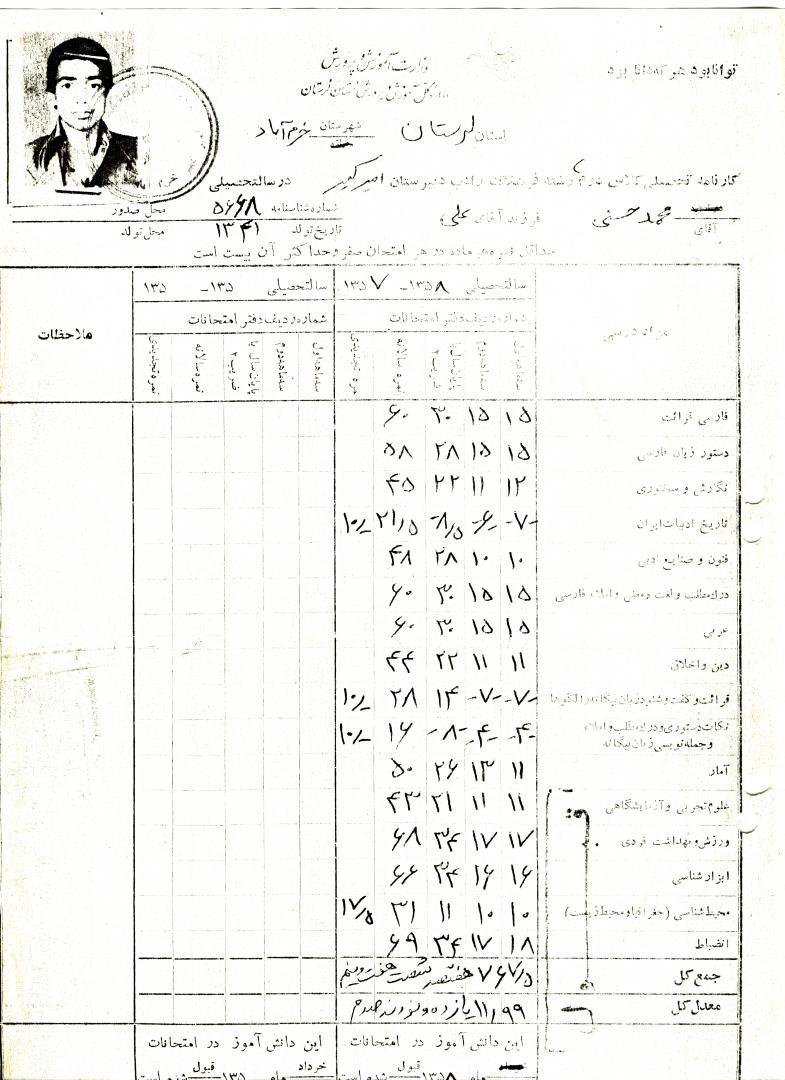 توانا بود هر که دانا بود
وزارت آموزش و پرورش
اداره کل آموزش و پرورش استان لرستان
استان لرستان شهرستان خرم آباد
کارنامه تحصیلی کلاس دوم رشته فرهنگ و ادب دبیرستان امیرکبیر در سال تحصیلی
آقای محمد حسنی فرزند آقای علی شماره شناسنامه ۵۶۶۸ محل صدور
تاریخ تولد ۱۳۴۱ محل تولد
حداقل نمره هر ماده در هر امتحان صفر و حداکثر آن بیست است
مواد درسی سال تحصیلی ۱۳۵۸ - ۱۳۵۷ سال تحصیلی ۱۳۵ - ۱۳۵ ملاحظات
شماره ردیف دفتر امتحانات شماره ردیف دفتر امتحانات
سه ماهه اول سه ماهه دوم پایان سال با ضریب ۲ نمره سالانه نمره تجدیدی سه ماهه اول سه ماهه دوم پایان سال با ضریب ۲ نمره سالانه نمره تجدیدی
فارسی قرائت ۱۵ ۱۵ ۳۰ ۶۰
دستور زبان فارسی ۱۵ ۱۵ ۲۸ ۵۸
نگارش و سخنوری ۱۲ ۱۱ ۲۲ ۴۵
تاریخ ادبیات ایران -۷- -۶- -۸/۵ ۲۱/۵ ۱۰/-
فنون و صنایع ادبی ۱۰ ۱۰ ۲۸ ۴۸
درک مطلب و لغت و معنی و املاء فارسی ۱۵ ۱۵ ۳۰ ۶۰
عربی ۱۵ ۱۵ ۳۰ ۶۰
دین و اخلاق ۱۱ ۱۱ ۲۲ ۴۴
قرائت و گفت و شنود زبان بیگانه و الگوها -۷- -۷- ۱۴ ۲۸ ۱۰/-
نکات دستوری و درک مطلب و املاء و جمله نویسی زبان بیگانه -۴- -۴- -۸- ۱۶ ۱۰/-
آمار ۱۱ ۱۳ ۲۶ ۵۰
علوم تجربی و آزمایشگاهی ۱۱ ۱۱ ۲۱ ۴۳
ورزش و بهداشت فردی ۱۷ ۱۷ ۳۴ ۶۸
ابزارشناسی ۱۶ ۱۶ ۳۴ ۶۶
محیط شناسی (جغرافیا و محیط زیست) ۱۰ ۱۰ ۱۱ ۳۱ ۱۷/۵
انضباط ۱۸ ۱۷ ۳۴ ۶۹
جمع کل ۷۶۷/۵ هفتصد شصت هفت و نیم
معدل کل ۱۱/۹۹ یازده و نود نه صدم
این دانش آموز در امتحانات این دانش آموز در امتحانات
ماه ۱۳۵۸ قبول شده است خرداد ماه ۱۳۵ قبول شده است